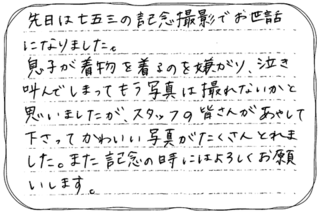 先日は七五三の記念撮影でお世話
になりました。
息子が着物を着るのを嫌がり、泣き
叫んでしまってもう写真は撮れないかと
思いましたが、スタッフの皆さんがあやして
下さってかわいい写真がたくさんとれま
した。また記念の時にはよろしくお願
いします。